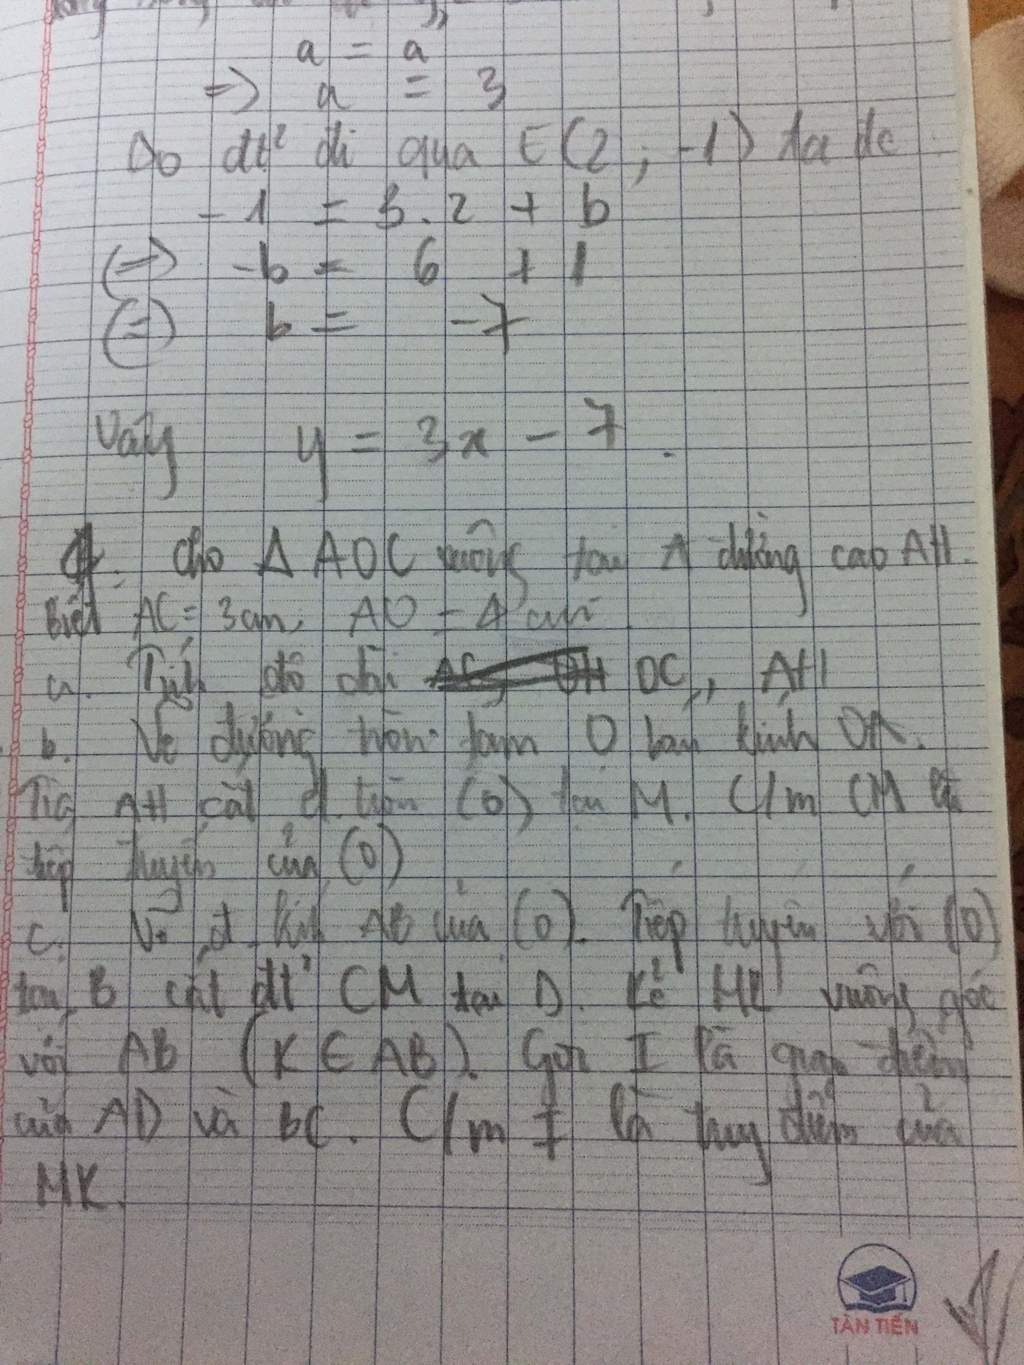 a = a
=> a = 3
Do đt² đi qua E(2; -1) ta dc
-1 = 3.2 + b
(=) -b = 6 + 1
(=) b = -7
Vậy y = 3x - 7.
4. Cho Δ AOC vuông tại A đường cao AH.
Biết AC = 3cm, AO = 4 cm
a. Tính độ dài OC, AH
b. Vẽ đường tròn tâm O bán kính OA.
Tia AH cắt đ. tròn (O) tại M. C/m CM là
tiếp tuyến của (O)
c. Vẽ đ. kính AB của (O). Tiếp tuyến với (O)
tại B cắt đt² CM tại D. Kẻ MK vuông góc
với AB (K ∈ AB). Gọi I là giao điểm
của AD và BC. C/m I là trung điểm của
MK.
TÂN TIẾN